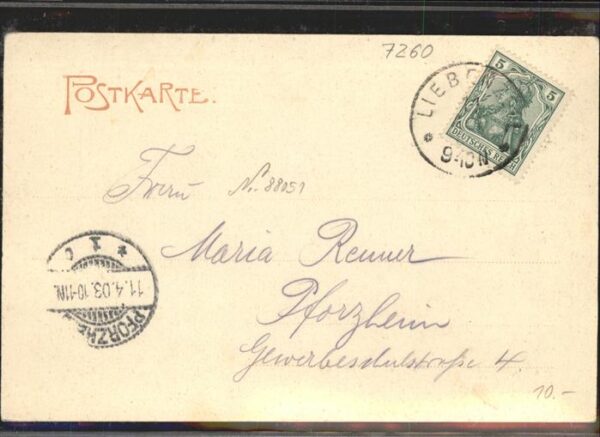 7260
POSTKARTE.
5 5
DEUTSCHES REICH
LIEB
9-10N
Frau No. 88051
Maria Renner
Pforzheim
Gewerbeschulstraße 4.
PFORZHE
11.4.03.10-11N.
* 1 c
10.-